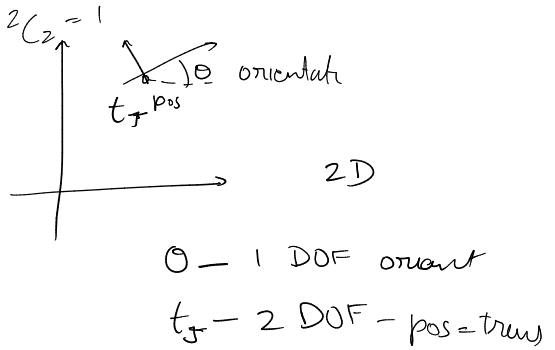 ²C₂ = 1
θ orientati
t_J pos
2D
θ — 1 DOF orient
t_J — 2 DOF — pos = trans